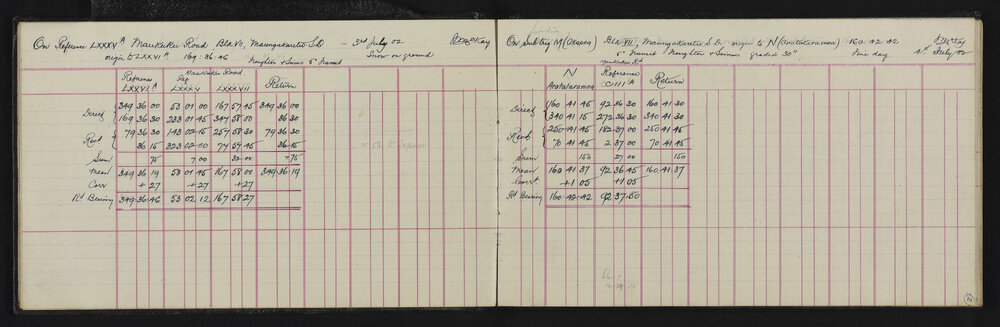 On Reference LXXXV A Maukuku Road Blk VII, Maungakaretu S.D. — 3rd July 02 D McKay
origin to LXXVI A. 169. 36. 46 Houghton & Simms 5" Transit Snow on ground
Maukuku Road
Reference Peg Return
LXXVI A LXXXV LXXXVII
Direct 349 36 00 53 01 00 167 57 45 349 36 00
169 36 30 233 01 45 347 58 00 36 30
Revd 79 36 30 143 02 15 257 58 30 79 36 30
36 15 323 02 00 77 57 45 36 15
Sum 75 7 00 32 00 +75
Mean 349 36 19 53 01 45 167 58 00 349 36 19
Corr +27 +27 +27
Rd Bearing 349 36 46 53 02 12 167 58 27
On Sub trig M (Otapou) Blk VII, Maungakaretu S.D. origin to N (Aratataramoa) 160. 42. 42 D McKay
5" Transit Houghton & Simms graded 30" Fine day. 4th July 02
Maukuku Rd
N Reference Return
Aratataramoa CIII A
Direct 160 41 45 92 36 30 160 41 30
340 41 15 272 36 30 340 41 30
Revd 250 41 45 182 37 00 250 41 45
70 41 45 2 37 00 70 41 45
Sum 150 27 00 150
Mean 160 41 37 92 36 45 160 41 37
Corrt +1 05 +1 05
Rd Bearing 160 42 42 92 37 50